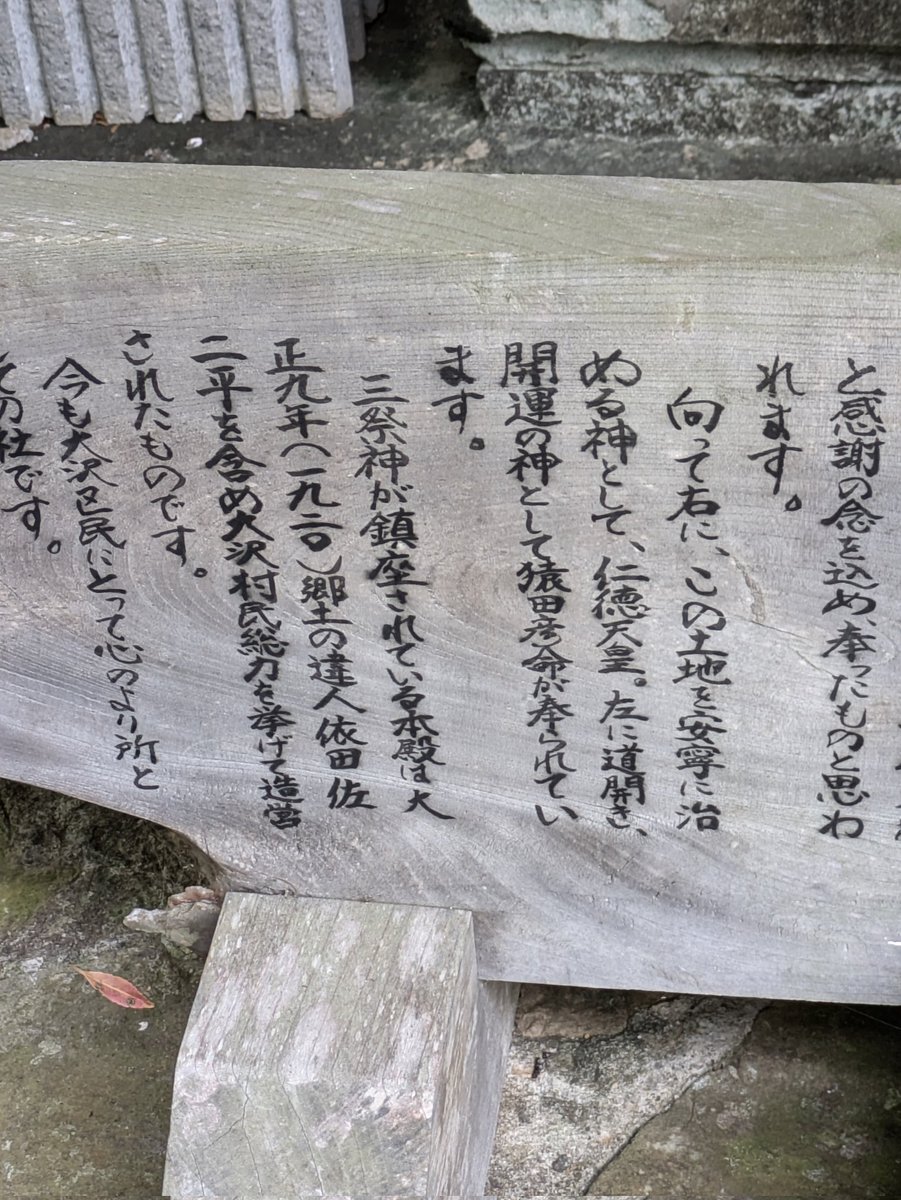 と感謝の念を込め、奉ったものと思わ
れます。
向って右に、この土地を安寧に治
める神として、仁徳天皇。左に道開き、
開運の神として猿田彦命が奉られてい
ます。
三祭神が鎮座されている本殿は大
正九年(一九二〇)郷土の達人依田佐
二平を含め大沢村民総力を挙げて造営
されたものです。
今も大沢区民にとって心のより所と
ての社です。